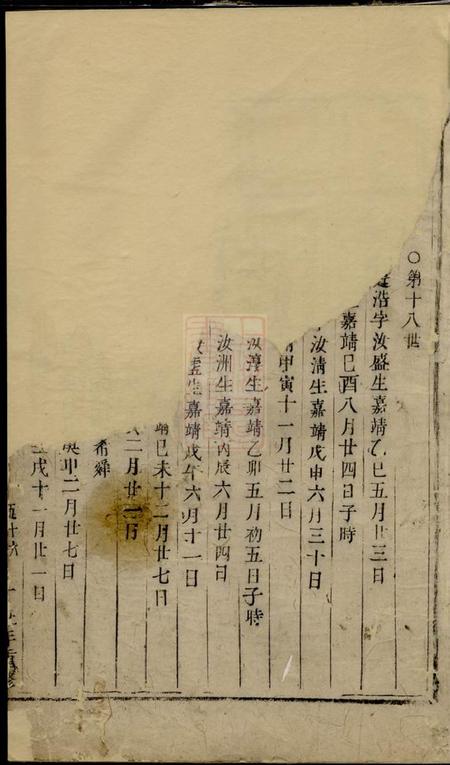 ○第十八世
浩字汝盛生嘉靖乙巳五月廿三日
嘉靖己酉八月廿四日子時
汝清生嘉靖戊申六月三十日
甲寅十一月廿二日
汝淳生嘉靖乙卯五月初五日子時
汝洲生嘉靖丙辰六月廿四日
生嘉靖戊午六月十一日
己未十一月廿七日
二月廿二日
希舜
庚申二月廿七日
戌十一月廿一日